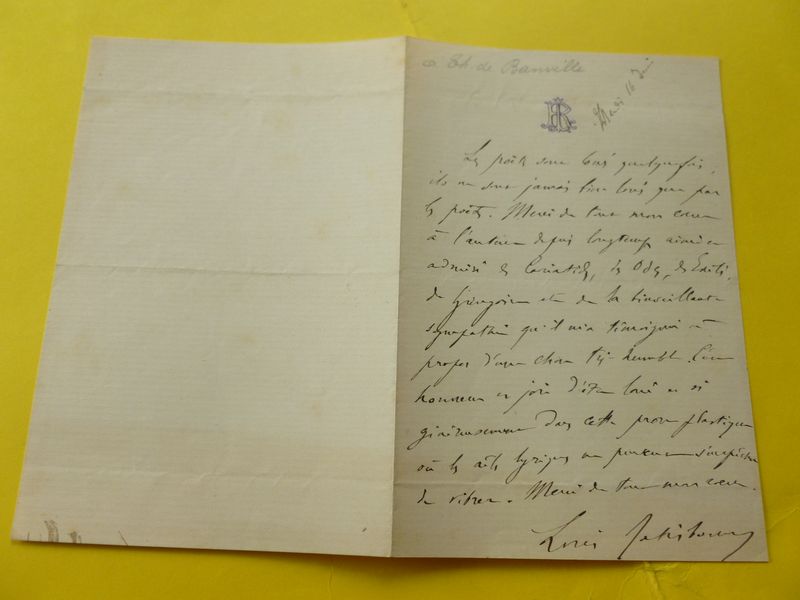 à Th. de Banville
Mardi 16
Les poëtes sont loués quelquefois,
ils ne sont jamais bien loués que par
les poëtes. Merci de tout mon cœur
à l'auteur depuis longtemps aimé et
admiré des Cariatides, des Odes, des Exilés,
de Gringoire et de la bienveillante
sympathie qu'il m'a témoignée à
propos d'une chose très humble. C'est
honneur et joie d'être loué et si
généreusement dans cette prose plastique
où les ailes lyriques ne peuvent s'empêcher
de vibrer. Merci de tout mon cœur.
Louis